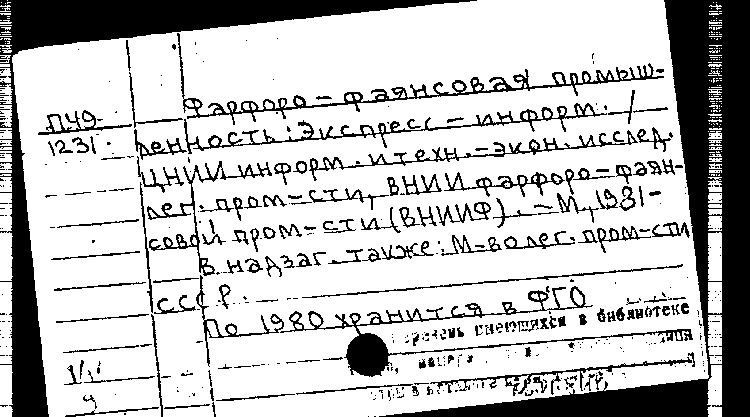 П49
1231
Фарфоро-фаянсовая промыш-
ленность: Экспресс-информ. /
ЦНИИ информ. и техн.-экон. исслед.
лег. пром-сти, ВНИИ фарфоро-фаян-
совой пром-сти (ВНИИФ). - М., 1981-
В надзаг. также: М-во лег. пром-сти
СССР.
По 1980 хранится в ФГО
имеющихся в библиотеке